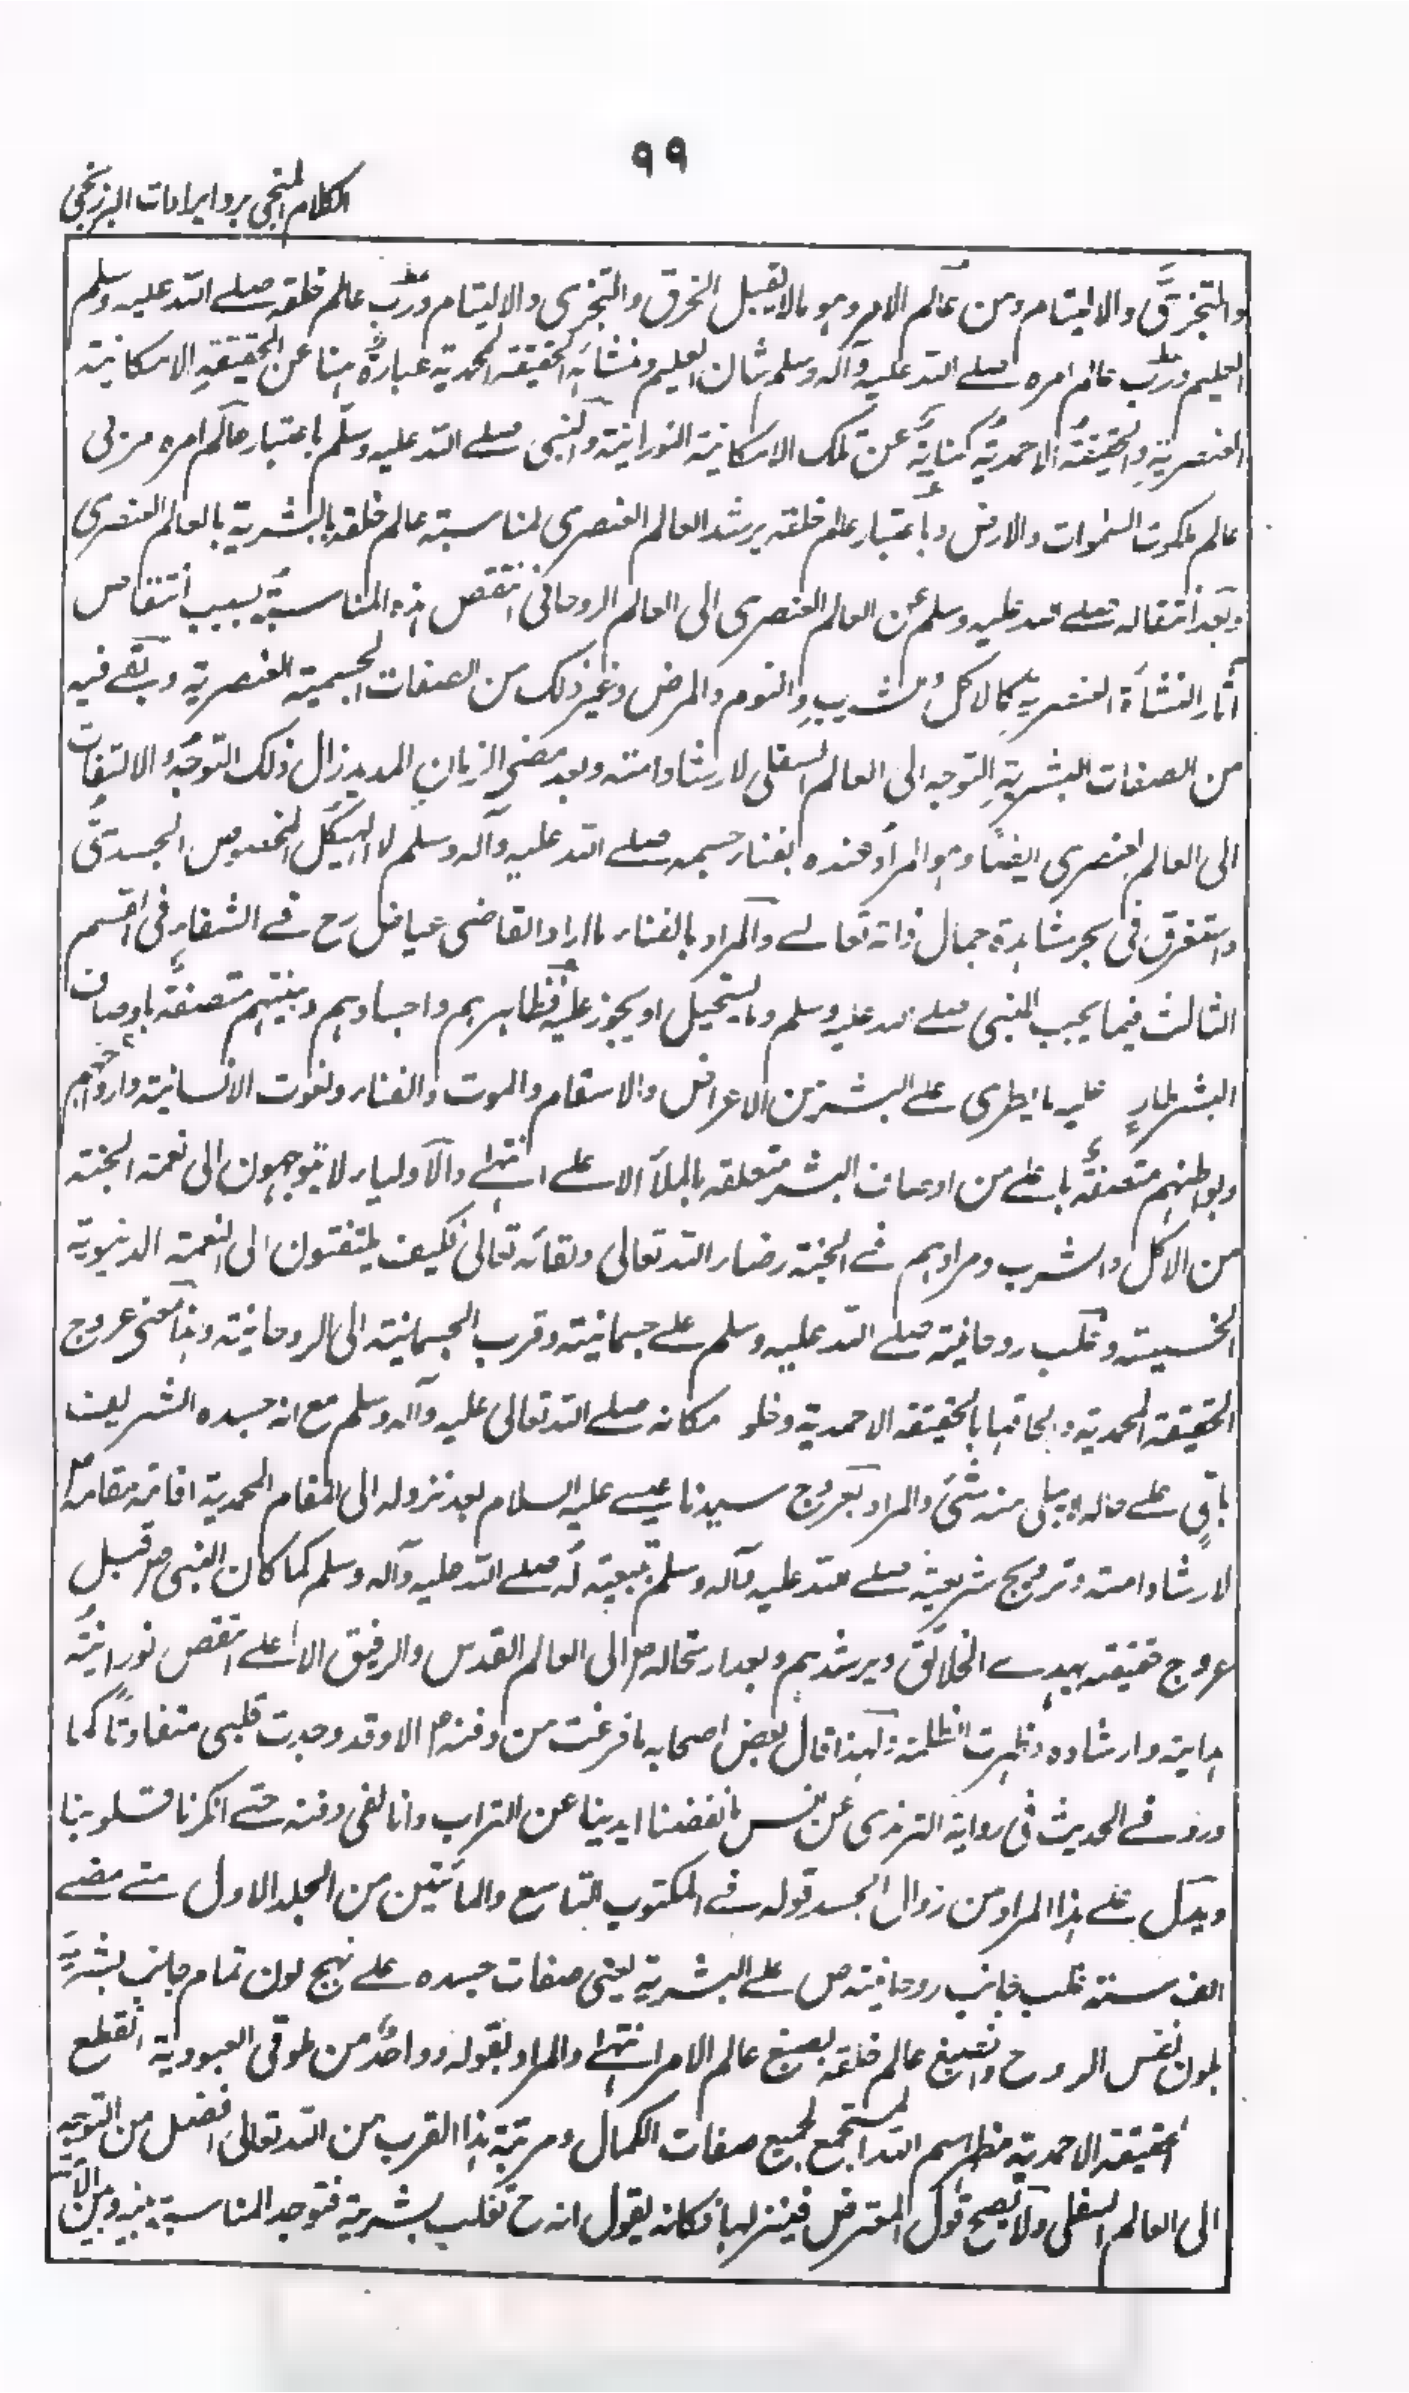 ٩٩
الكلام المنجى برد ايرادات البرزنجى
والتجزى والالتيام ومن عالم الامر وهو مالا يقبل الخرق والتجزى والالتيام ورب عالم خلقه صلے الله عليه وسلم
العليم ورب عالم امره صلے الله عليه وآله وسلم شان العليم ومنشائه الحقيقة المحمدية عبارة هنا عن الحقيقة الامكانية
العنصرية والحقيقة الاحمدية كناية عن تلك الامكانية النورانية والنبى صلے الله عليه وسلم باعتبار عالم امره مربى
عالم ملكوت السموات والارض وباعتبار عالم خلقه يرشد العالم العنصرى لمناسبة عالم خلقه بالبشرية بالعالم العنصرى
وبعد انتقاله صلے الله عليه وسلم عن العالم العنصرى الى العالم الروحانى انتقص هذه المناسبة بسبب انتقاص
آثار النشأة العنصرية كالاكل والشرب والنوم والمرض وغير ذلك من الصفات الجسمية العنصرية وبقے فيه
من الصفات البشرية التوجه الى العالم السفلى لارشاد امته وبعد مضى الزمان المديد زال ذلك التوجه والالتفات
الى العالم العنصرى ايضا وهو المراد عنده بفناء جسمه صلے الله عليه وآله وسلم لا الهيكل المخصوص الجسدى
واستغرق فى بحر مشاهدة جمال ذاته تعالے والمراد بالفناء ما اراد القاضى عياض رح فے الشفاء فى القسم
الثالث فيما يجب للنبى صلے الله عليه وسلم وما يستحيل او يجوز عليه فظاهرهم واجسادهم وبنيتهم متصفة باوصاف
البشر طار عليه ما يطرى علے البشر من الاعراض والاسقام والموت والفناء ونعوت الانسانية وارواحهم
وبواطنهم متصفة باعلے من اوصاف البشر متعلقة بالملأ الاعلے انتهے والاولياء لا يتوجهون الى نعمة الجنة
من الاكل والشرب ومرادهم فے الجنة رضاء الله تعالى ولقائه تعالى فكيف يلتفتون الى النعمة الدنيوية
الخسيسة وغلب روحانيته صلے الله عليه وسلم علے جسمانيته وقرب الجسمانية الى الروحانية وهذا معنى عروج
الحقيقة المحمدية والحاقها بالحقيقة الاحمدية وخلو مكانه صلے الله تعالى عليه وآله وسلم مع انه جسده الشريف
باق علے حاله لم يبلى منه شئ والمراد بعروج سيدنا عيسے عليه السلام بعد نزوله الى المقام المحمدية اقامة مقامه ص
لارشاد امته وترويج شريعته صلے الله عليه وآله وسلم تبعية له صلے الله عليه وآله وسلم كما كان النبى ص قبل
عروج حقيقته يهدے الخلائق ويرشدهم وبعد ارتحاله ص الى العالم القدس والرفيق الاعلے انتقص نورانية
هدايته وارشاده وظهرت الظلمة ولهذا قال بعض اصحابه ما فرغت من دفنه ص الا وقد وجدت قلبى متفاوتا كما
ورد فے الحديث فى رواية الترمذى عن انس ما نفضنا ايدينا عن التراب وانا لفى دفنه حتے انكرنا قلوبنا
ويدل علے هذا المراد من زوال الجسد قوله فے المكتوب التاسع والمأتين من الجلد الاول متے مضے
الف سنة غلب جانب روحانيته ص علے البشرية يعنى صفات جسده علے نهج لون تمام جانب بشريته
بلون نفس الروح وانصبغ عالم خلقه بصبغ عالم الامر انتهے والمراد بقوله وواحد من طوقى العبودية انقطع
الحقيقة الاحمدية مظهر اسم الله المستجمع لجميع صفات الكمال ومرتبة هذا القرب من الله تعالى افضل من التوجه
الى العالم السفلى ولا يصح قول المعترض فينزلها فكانه يقول انه ح تغلب بشريته فتوجد المناسبة بينه وبين